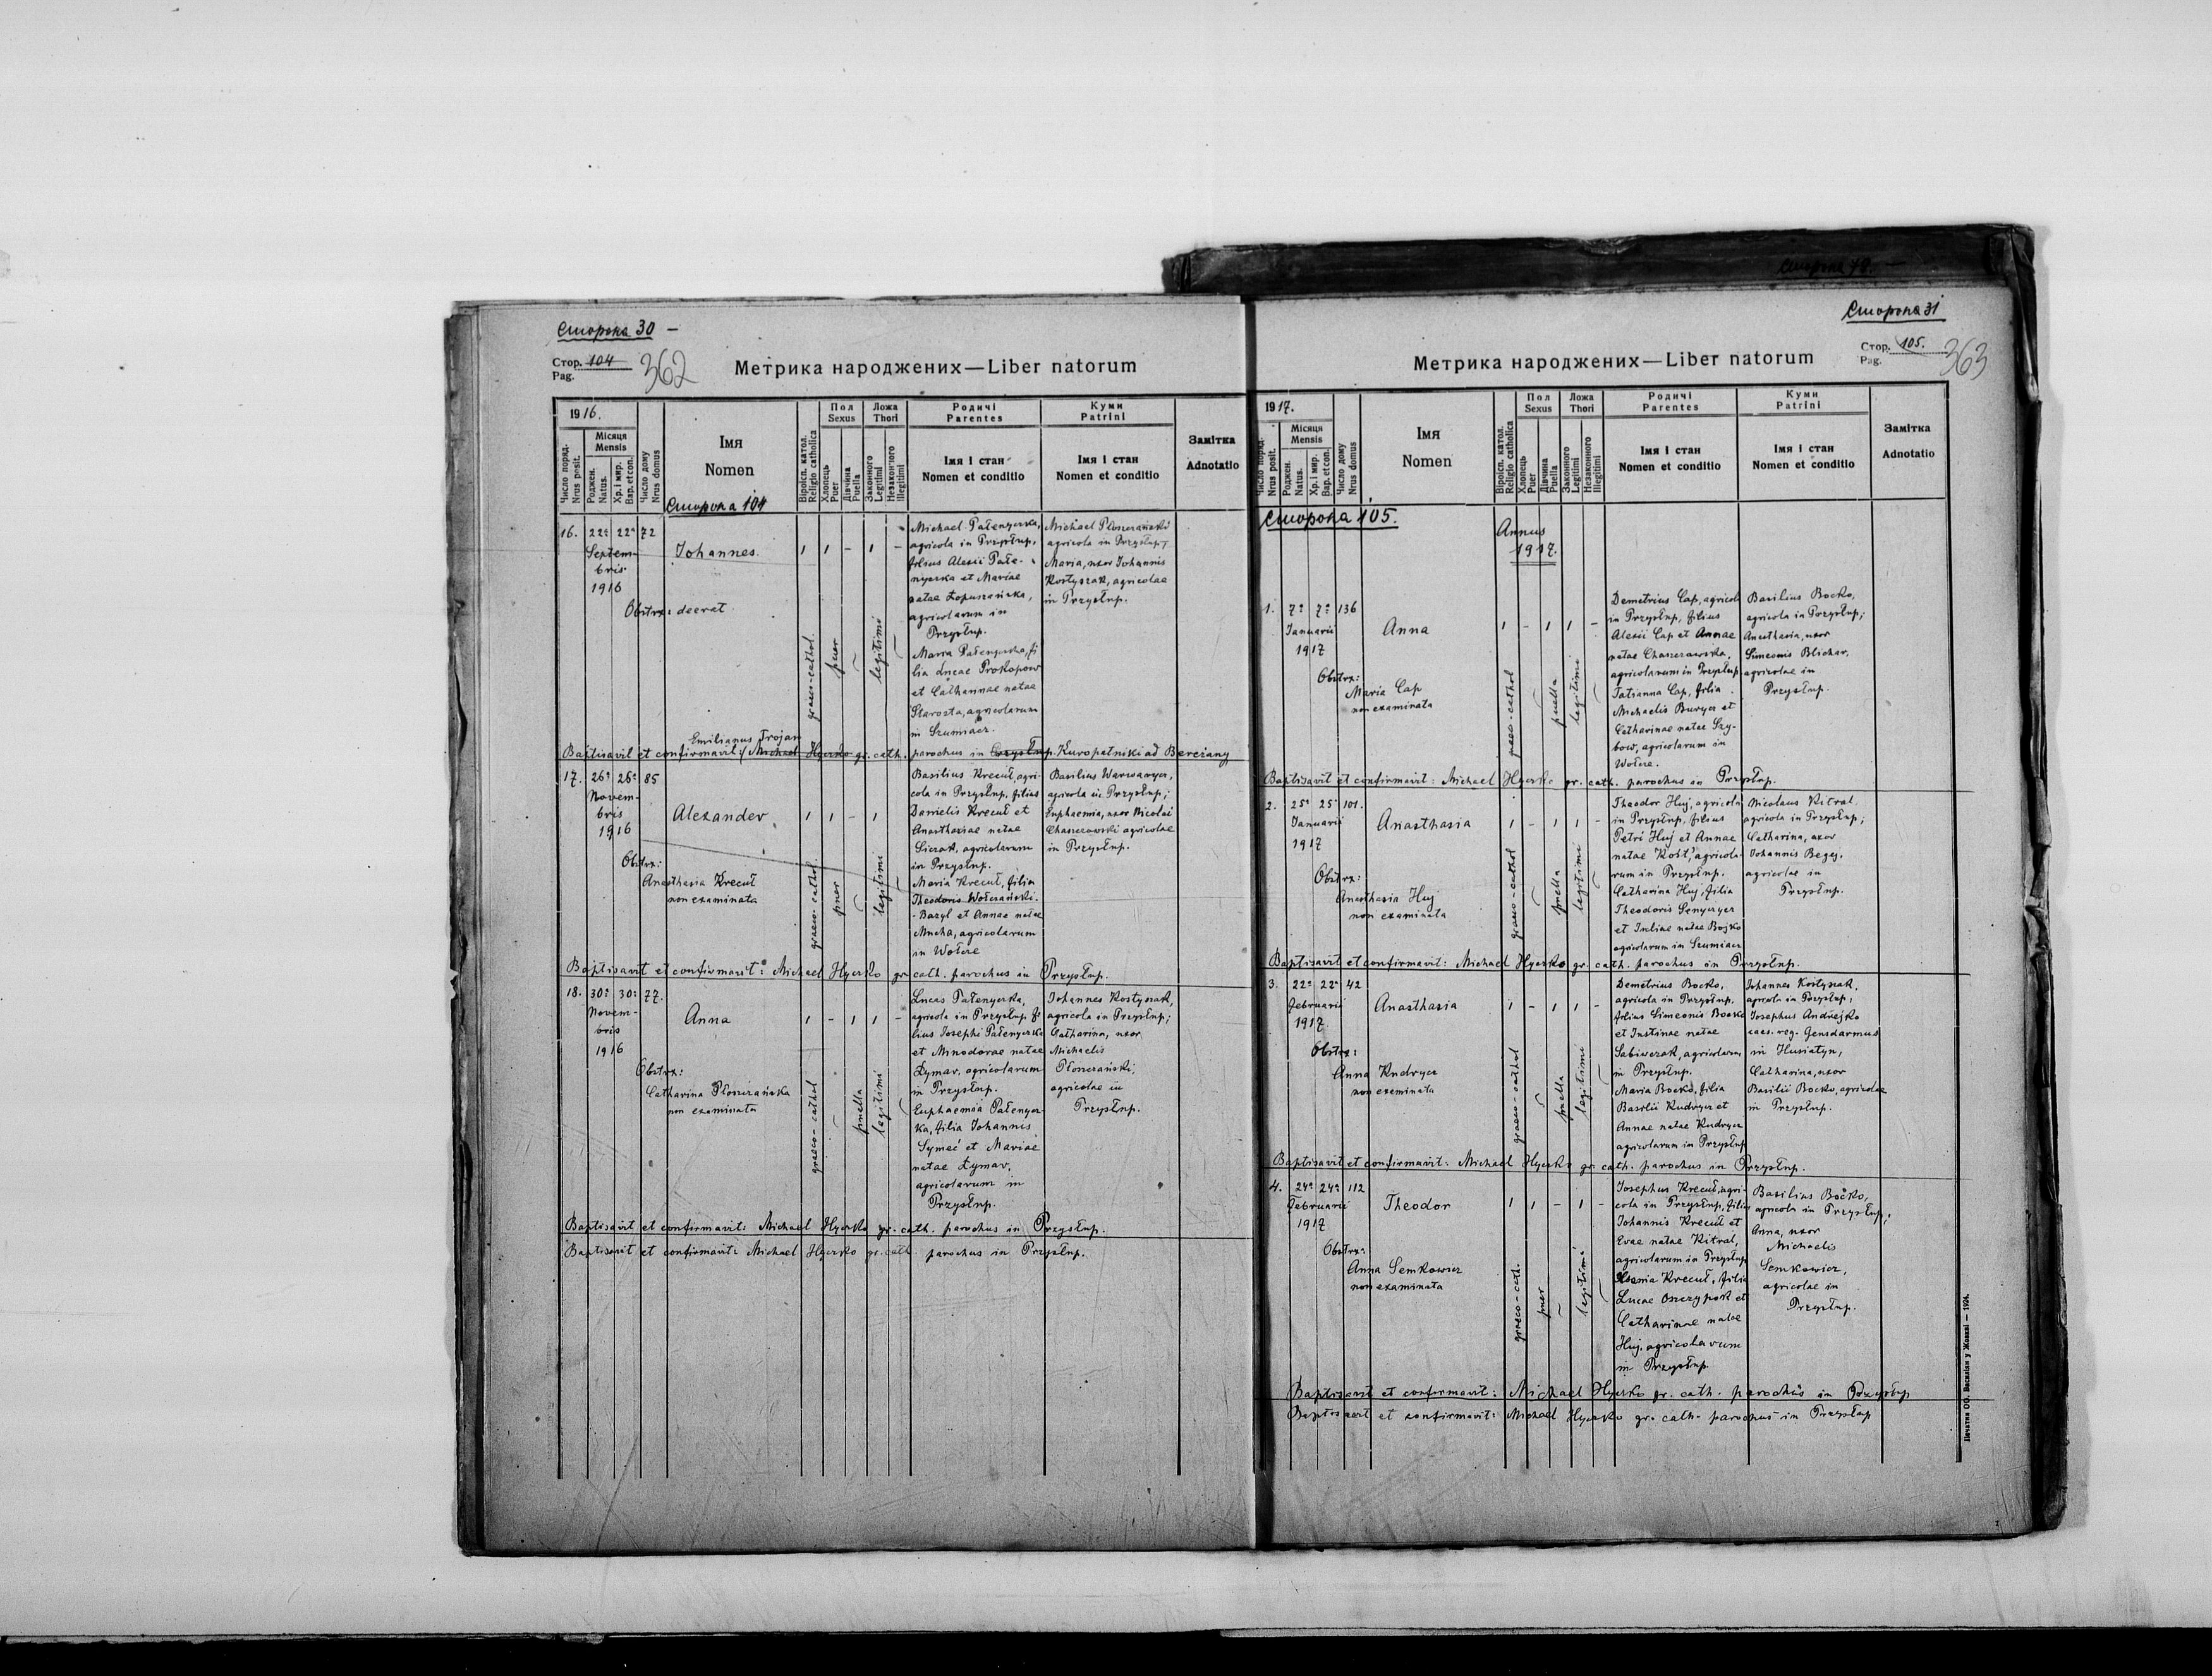 Сторона 30 –
Стор. 104
Pag.
362
Метрика народжених — Liber natorum
1916.
Число поряд.
Nrus posit.
Місяця
Mensis
Роджен.
Natus.
Хр. і мир.
Bap. et con.
Число дому
Nrus domus
Імя
Nomen
Віроісп. катол.
Religio catholica
Пол
Sexus
Хлопець
Puer
Дівчина
Puella
Ложа
Thori
Законного
Legitimi
Незаконного
Illegitimi
Родичі
Parentes
Імя і стан
Nomen et conditio
Куми
Patrini
Імя і стан
Nomen et conditio
Замітка
Adnotatio
Сторона 104
16. 22a 22a 72
Septem-
bris
1916
Johannes.
Obstrx: deerat
graeco-cathol.
puer
legitimi
Michael Pałenyczka,
agricola in Przysłup,
filius Alexii Pałe-
nyczka et Mariae
natae Łopuszańska,
agricolarum in
Przysłup.
Maria Pałenyczka, fi
lia Lucae Prokopow
et Catharinae natae
Starosta, agricolarum
in Szumiacz.
Michael Płoszczański
agricola in Przysłup,
Maria, uxor Johannis
Kostyszak, agricolae
in Przysłup.
Emilianus Trojan
Baptisavit et confirmavit: Michael Hycrko gr. cath. parochus in Przysłup. Kuropatniki ad Bereżany
17. 26a 26a 85
Novem-
bris
1916
Alexander
Obstrx:
Anasthasia Krecuł
non examinata
graeco-cathol.
puer
legitimi
Basilius Krecuł, agri-
cola in Przysłup, filius
Danielis Krecuł et
Anasthasiae natae
Siczak, agricolarum
in Przysłup.
Maria Krecuł, filia
Theodoris Wołczański-
-Bazyl et Annae natae
Mucha, agricolarum
in Wołcze
Basilius Warwaryez,
agricola in Przysłup;
Euphaemia, uxor Nicolai
Chaszczowski agricolae
in Przysłup.
Baptisavit et confirmavit: Michael Hycrko gr. cath. parochus in Przysłup.
18. 30a 30a 77.
Novem-
bris
1916
Anna
Obstrx:
Catharina Płoszczańska
non examinata
graeco-cathol
puella
legitimi
Lucas Pałenyczka,
agricola in Przysłup, fi
lius Josephi Pałenyczka
et Minodorae natae
Łymar, agricolarum
in Przysłup.
Euphaemia Pałenycz-
ka, filia Johannis
Symeć et Mariae
natae Łymar,
agricolarum in
Przysłup.
Johannes Kostyszak,
agricola in Przysłup;
Catharina, uxor
Michaelis
Płoszczański,
agricolae in
Przysłup.
Baptisavit et confirmavit: Michael Hycrko gr. cath. parochus in Przysłup.
Baptisavit et confirmavit: Michael Hycrko gr. cath. parochus in Przysłup.
Сторона 78. –
Сторона 31
Стор. 105.
Pag.
363
Метрика народжених — Liber natorum
1917.
Число поряд.
Nrus posit.
Місяця
Mensis
Роджен.
Natus.
Хр. і мир.
Bap. et con.
Число дому
Nrus domus
Імя
Nomen
Віроісп. катол.
Religio catholica
Пол
Sexus
Хлопець
Puer
Дівчина
Puella
Ложа
Thori
Законного
Legitimi
Незаконного
Illegitimi
Родичі
Parentes
Імя і стан
Nomen et conditio
Куми
Patrini
Імя і стан
Nomen et conditio
Замітка
Adnotatio
Сторона 105.
Annus
1917.
1. 7a 7a 136
Januarii
1917
Anna
Obstrx:
Maria Cap
non examinata
graeco-cathol
puella
legitimi
Demetrius Cap, agricola
in Przysłup, filius
Alexii Cap et Annae
natae Chaszczowska,
agricolarum in Przysłup
Tatianna Cap, filia
Michaelis Buryez et
Catharinae natae Szy-
bow, agricolarum in
Wołcze.
Basilius Bocko,
agricola in Przysłup;
Anasthasia, uxor
Simeonis Blichar,
agricolae in
Przysłup.
Baptisavit et confirmavit: Michael Hycrko gr. cath. parochus in Przysłup.
2. 25a 25a 101.
Januarii
1917
Anasthasia
Obstrx:
Anasthasia Huj
non examinata
graeco-cathol
puella
legitimi
Theodor Huj, agricola
in Przysłup, filius
Petri Huj et Annae
natae Kost, agricola-
rum in Przysłup.
Catharina Huj, filia
Theodoris Senyczyez
et Juliae natae Bojko
agricolarum in Szumiacz
Nicolaus Kitral
agricola in Przysłup;
Catharina, uxor
Johannis Begej,
agricolae in
Przysłup.
Baptisavit et confirmavit: Michael Hycrko gr. cath. parochus in Przysłup.
3. 22a 22a 42
Februarii
1917
Anasthasia
Obstrx:
Anna Kudrycz
non examinata
graeco-cathol
puella
legitimi
Demetrius Bocko,
agricola in Przysłup,
filius Simeonis Bocko
et Justinae natae
Sabiwczak, agricolarum
in Przysłup.
Maria Bocko, filia
Basilii Kudrycz et
Annae natae Kudrycz
agricolarum in Przysłup
Johannes Kostyszak,
agricola in Przysłup;
Josephus Andrejko
caes. reg. Gensdarmus
in Husiatyn,
Catharina, uxor
Basilii Bocko, agricolae
in Przysłup.
Baptisavit et confirmavit: Michael Hycrko gr. cath. parochus in Przysłup.
4. 24a 24a 112
Februarii
1917
Theodor
Obstrx:
Anna Semkowicz
non examinata
graeco-cath.
puer
legitimi
Josephus Krecuł, agri-
cola in Przysłup, filius
Johannis Krecuł et
Evae natae Kitral,
agricolarum in Przysłup
Xenia Krecuł, filia
Lucae Oszczypok et
Catharinae natae
Huj, agricolarum
in Przysłup.
Basilius Bocko,
agricola in Przysłup;
Anna, uxor
Michaelis
Semkowicz,
agricolae in
Przysłup.
Baptisavit et confirmavit: Michael Hycrko gr. cath. parochus in Przysłup
Baptisavit et confirmavit: Michael Hycrko gr. cath. parochus in Przysłup
Печатня ОО. Василіян у Жовкві — 1924.